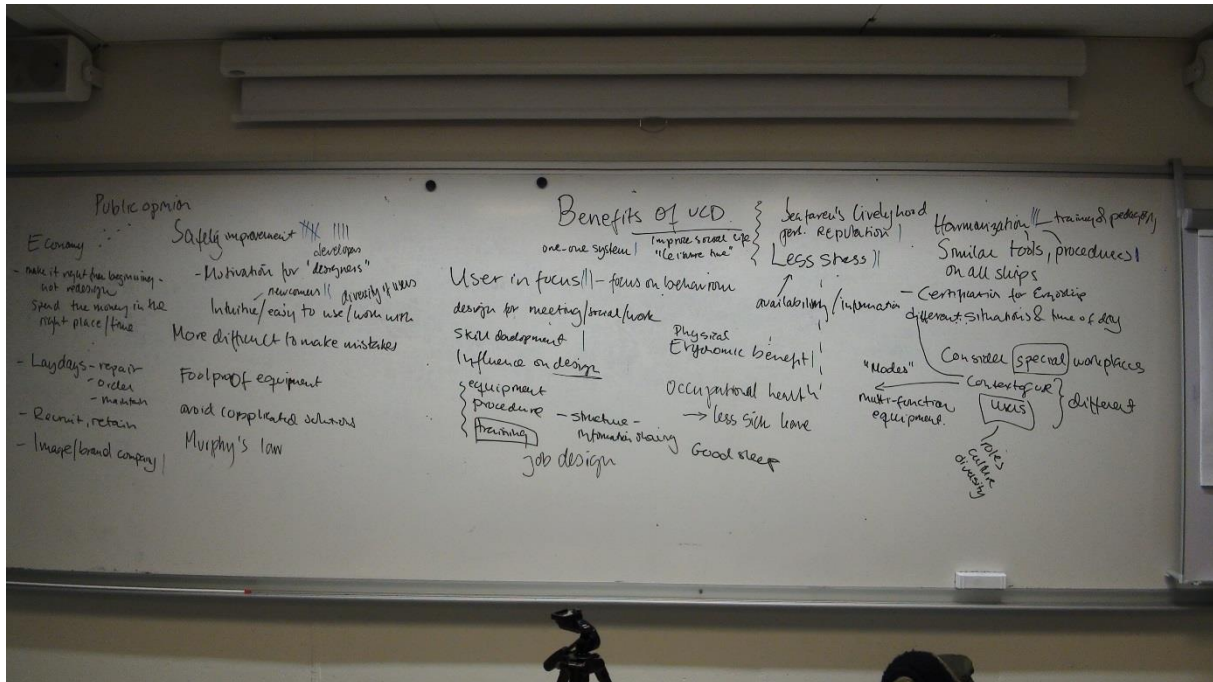 Public opinion
Economy
- make it right from beginning -
not redesign
spend the money in the
right place/time
- Laydays - repair
- order
- maintain
- Recruit, retain
- Image/brand company
Safety improvement
developers
- Motivation for "designers"
newcomers diversity of users
Intuitive/easy to use/work with
More difficult to make mistakes
Foolproof equipment
avoid complicated solutions
Murphy's law
Benefits of UCD
one-one system
Improve social life
"Leisure time"
User in focus - focus on behaviour
design for meeting/social/work
Skill development
Influence on design
equipment
procedure
training
- structure -
information sharing
job design
Physical
Ergonomic benefit
Occupational health
→ less sick leave
Good sleep
Seafarer's livelyhood
pers. Reputation
Less stress
availability/information
Harmonization - training & pedagogy
Similar tools, procedures
on all ships
- Certification for Ergoship
different situations & time of day
Consider special workplaces
Context of use
users
different
"Modes"
multi-function
equipment.
roles
culture
diversity